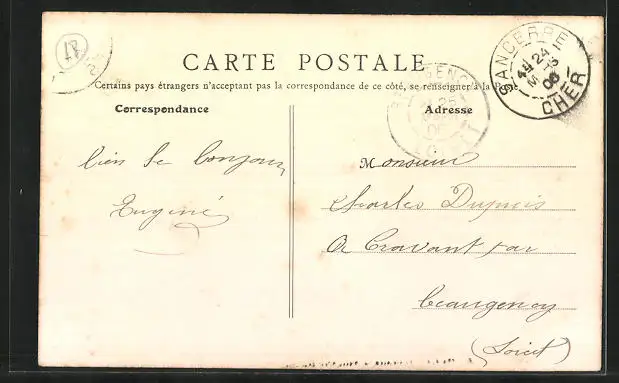 CARTE POSTALE
Certains pays étrangers n'acceptant pas la correspondance de ce côté, se renseigner à la Poste
Correspondance
Adresse
bien le bonjour
Eugène
Monsieur
Charles Dupuis
A Cravant par
beaugency
(Loiret)
SANCERRE
24
MARS
06
CHER
BEAUGENCY
25
06
LOIRET